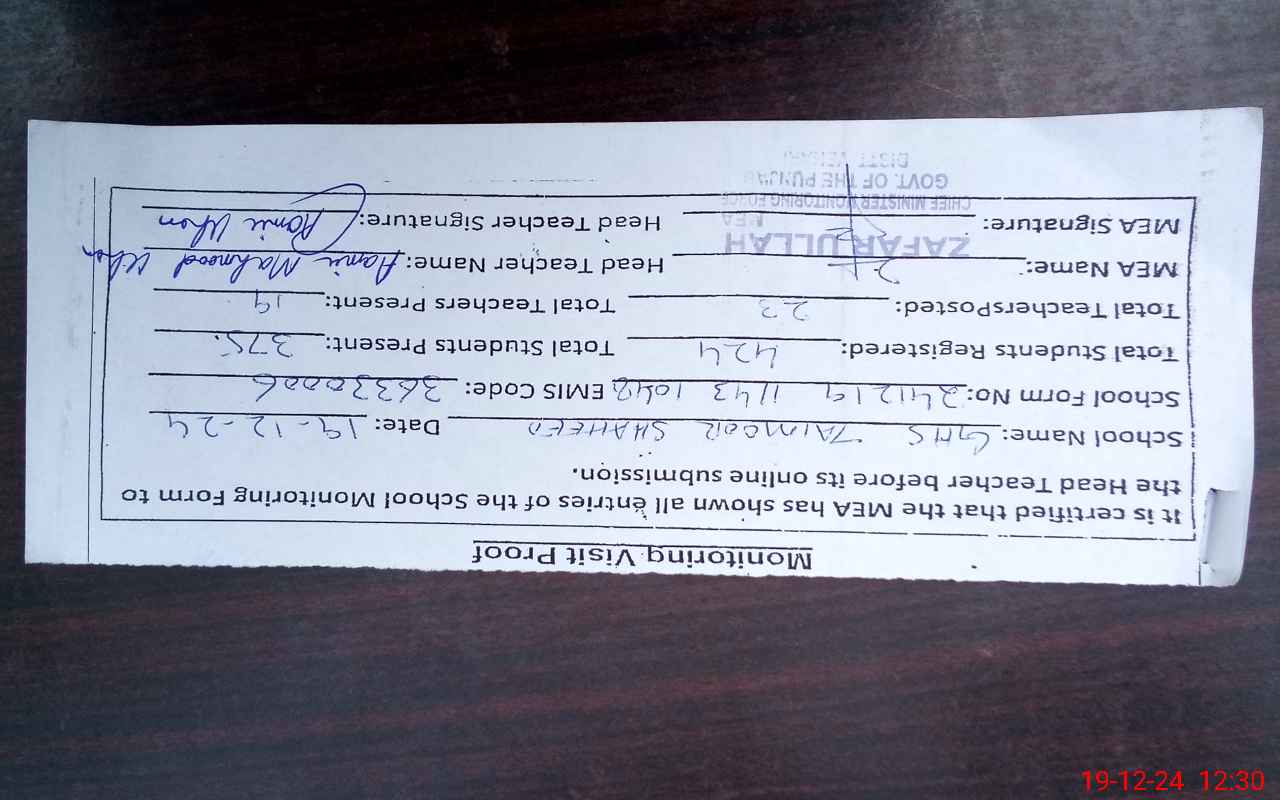 Monitoring Visit Proof
It is certified that the MEA has shown all entries of the School Monitoring Form to
the Head Teacher before its online submission.
School Name: GHS TAIMOOR SHAHEED Date: 19-12-24
School Form No: 241219 1143 1042 EMIS Code: 36330006
Total Students Registered: 424 Total Students Present: 375
Total TeachersPosted: 23 Total Teachers Present: 19
MEA Name: Head Teacher Name: Aamir Mahmood Khan
MEA Signature: Head Teacher Signature: Aamir Khan
ZAFAR ULLAH
MEA
CHIEF MINISTER MONITORING FORCE
GOVT. OF THE PUNJAB
DISTT. VEHARI
19-12-24 12:30